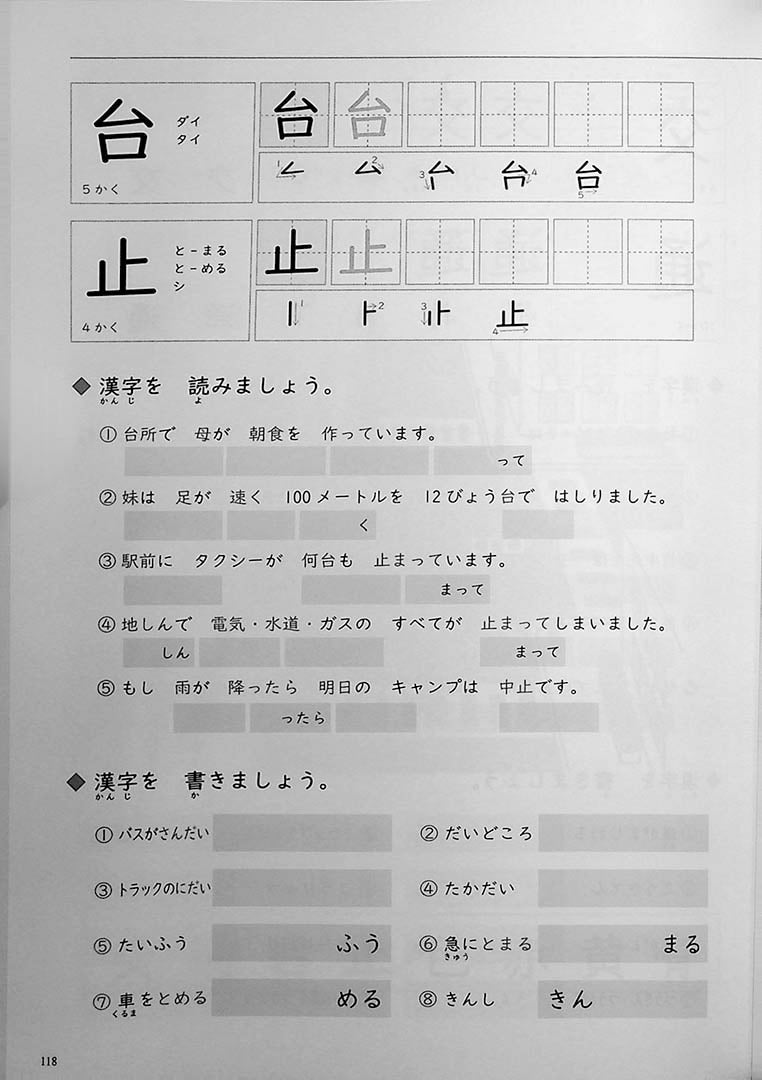 台
ダイ
タイ
5かく
台 台
1 2 3 4 5
止
と-まる
と-める
シ
4かく
止 止
1 2 3 4
◆漢字を 読みましょう。
かんじ よ
①台所で 母が 朝食を 作っています。
って
②妹は 足が 速く 100メートルを 12びょう台で はしりました。
く
③駅前に タクシーが 何台も 止まっています。
まって
④地しんで 電気・水道・ガスの すべてが 止まってしまいました。
しん まって
⑤もし 雨が 降ったら 明日の キャンプは 中止です。
ったら
◆漢字を 書きましょう。
かんじ か
①バスがさんだい ②だいどころ
③トラックのにだい ④たかだい
⑤たいふう ふう ⑥急にとまる まる
きゅう
⑦車をとめる める ⑧きんし きん
くるま
118